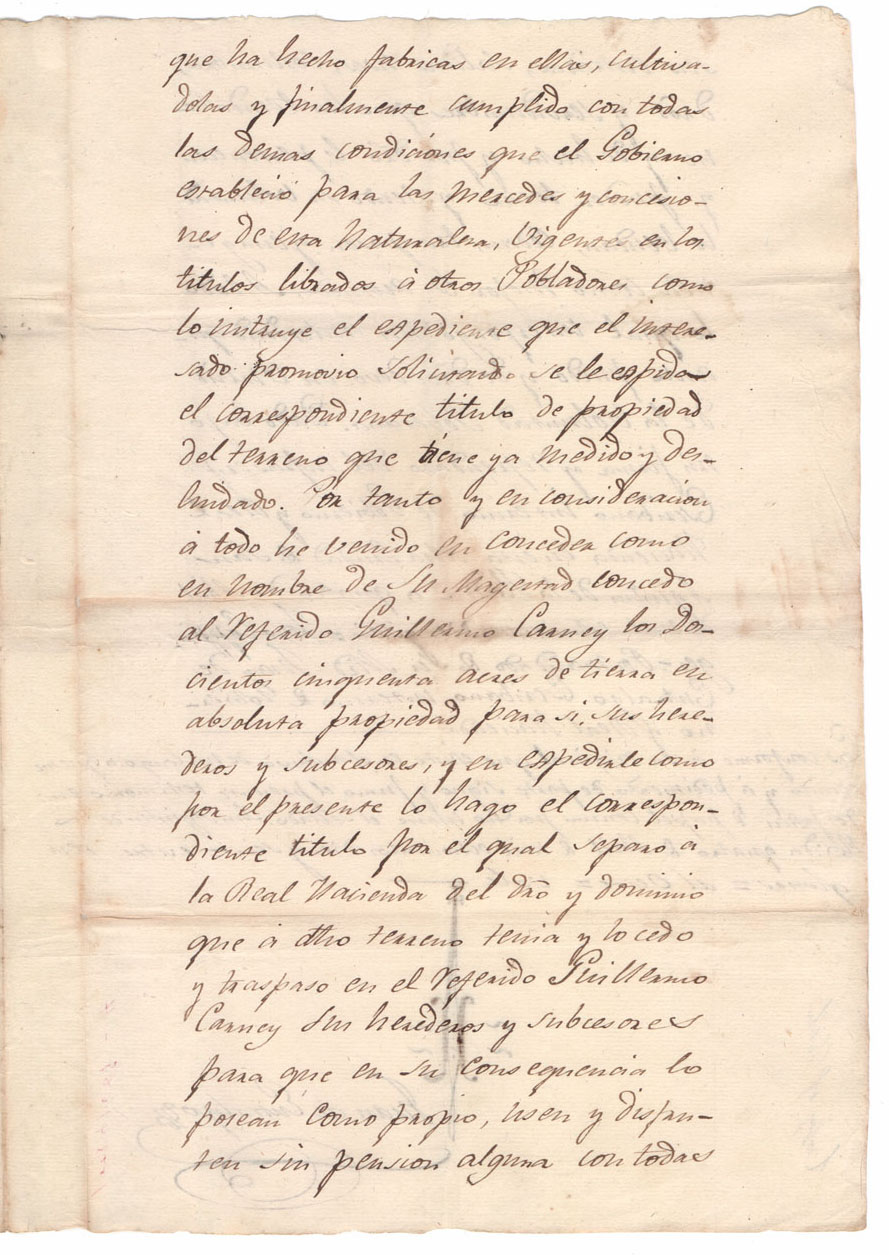 que ha hecho fabricas en ellas, cultiva-
dolas y finalmente cumplido con todas
las demas condiciones que el Gobierno
estableció para las mercedes y concesio-
nes de esta Naturaleza, Vigentes en los
titulos librados á otros Pobladores como
lo instruye el expediente que el intere-
sado promovio solicitando se le expida
el correspondiente titulo de propiedad
del terreno que tiene ya medido y des-
lindado. Por tanto y en consideracion
á todo he venido en conceder como
en nombre de Su Magestad concedo
al referido Guillermo Carney los Dos-
cientos cinquenta acres de tierra en
absoluta propiedad para si, sus here-
deros y subcesores, y en expedirle como
por el presente lo hago el correspon-
diente titulo por el qual separo á
la Real Hacienda del dro y dominio
que á dho terreno tenia y lo cedo
y traspaso en el referido Guillermo
Carney sus herederos y subcesores
para que en su consequencia lo
posean como propio, usen y disfru-
ten sin pension alguna con todas